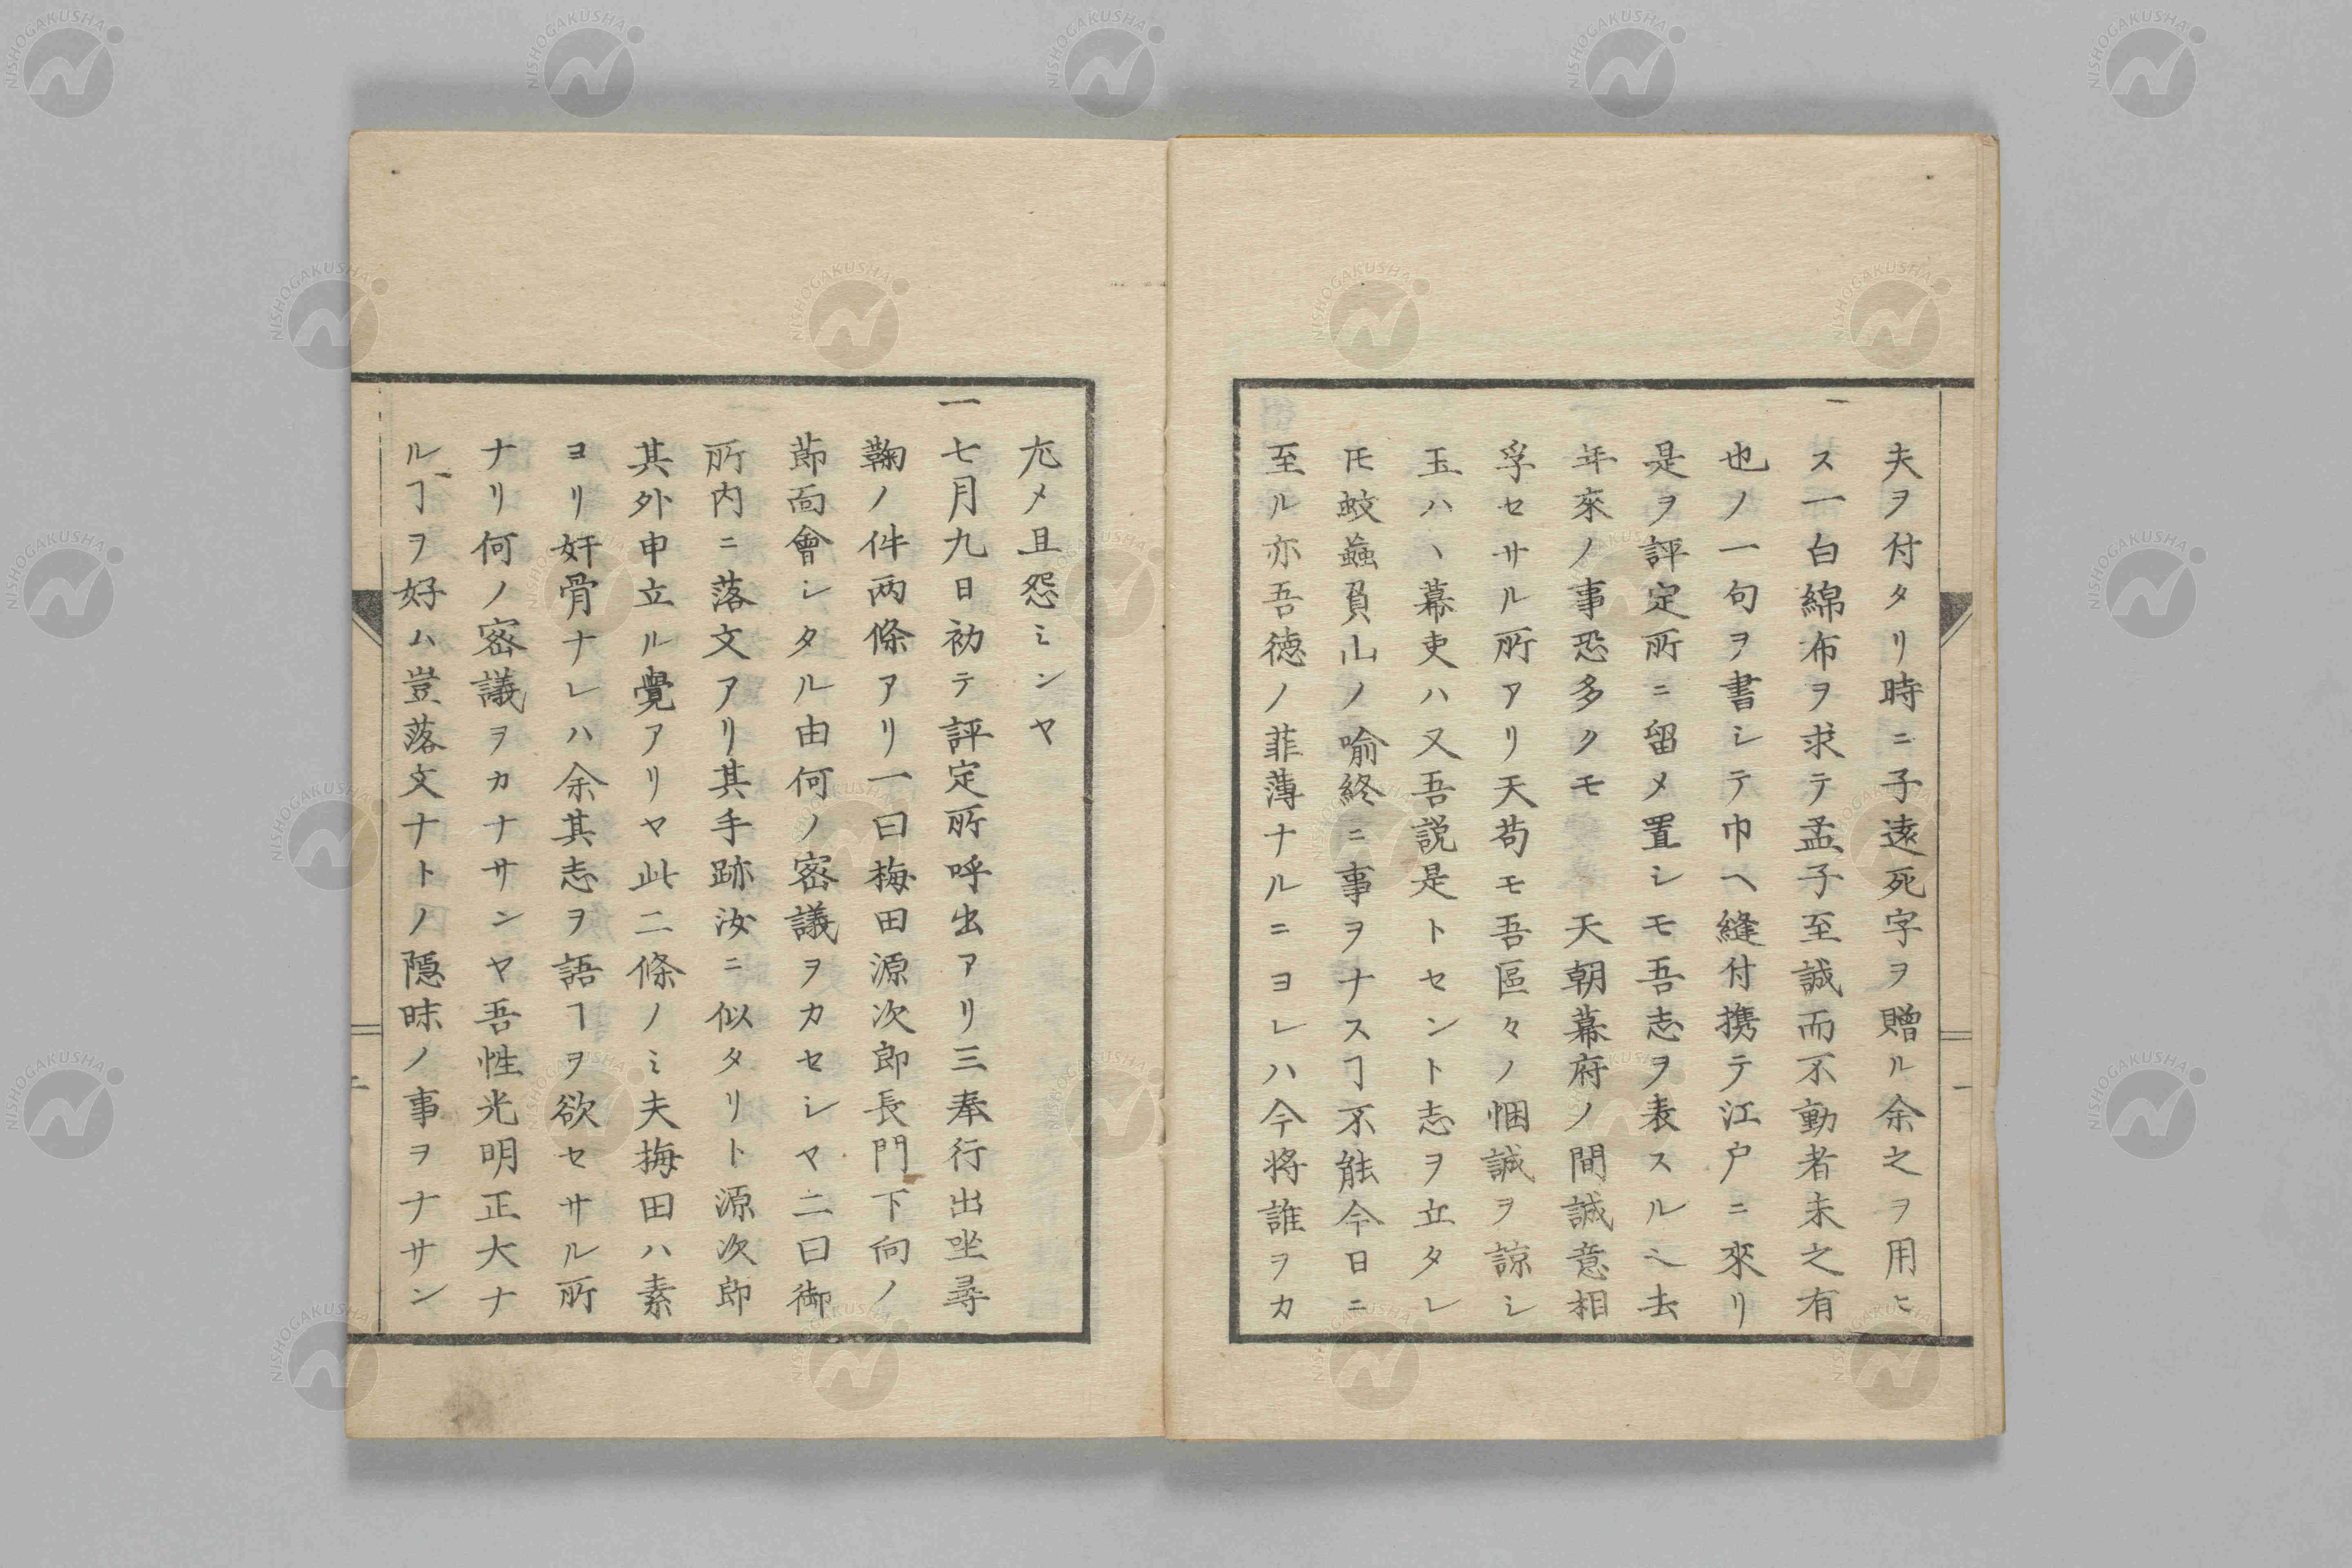 夫ヲ付タリ時ニ子遠死字ヲ贈ル余之ヲ用ヒ
ス一白綿布ヲ求テ孟子至誠而不動者未之有
也ノ一句ヲ書シテ巾ヘ縫付携テ江戸ニ來リ
是ヲ評定所ニ留メ置シモ吾志ヲ表スルミ去
年來ノ事恐多クモ 天朝幕府ノ間誠意相
孚セサル所アリ天苟モ吾區々ノ悃誠ヲ諒シ
玉ハヽ幕吏ハ又吾説是トセント志ヲ立タレ
𪜈蚊蝱負山ノ喻終ニ事ヲナスヿ不能今日ニ
至ル亦吾徳ノ菲薄ナルニヨレハ今将誰ヲカ
尤メ且怨ミンヤ
一七月九日初テ評定所呼出アリ三奉行出坐尋
鞠ノ件两條アリ一曰梅田源次郎長門下向ノ
莭面會シタル由何ノ密議ヲカセシマ二曰御
所内ニ落文アリ其手跡汝ニ似タリト源次郎
其外申立ル覺アリヤ此二條ノミ夫梅田ハ素
ヨリ奸骨ナレハ余其志ヲ語ヿヲ欲セサル所
ナリ何ノ密議ヲカナサンヤ吾性光明正大ナ
ルヿヲ好ム豈落文ナトノ隱昧ノ事ヲナサン
NISHOGAKUSHA